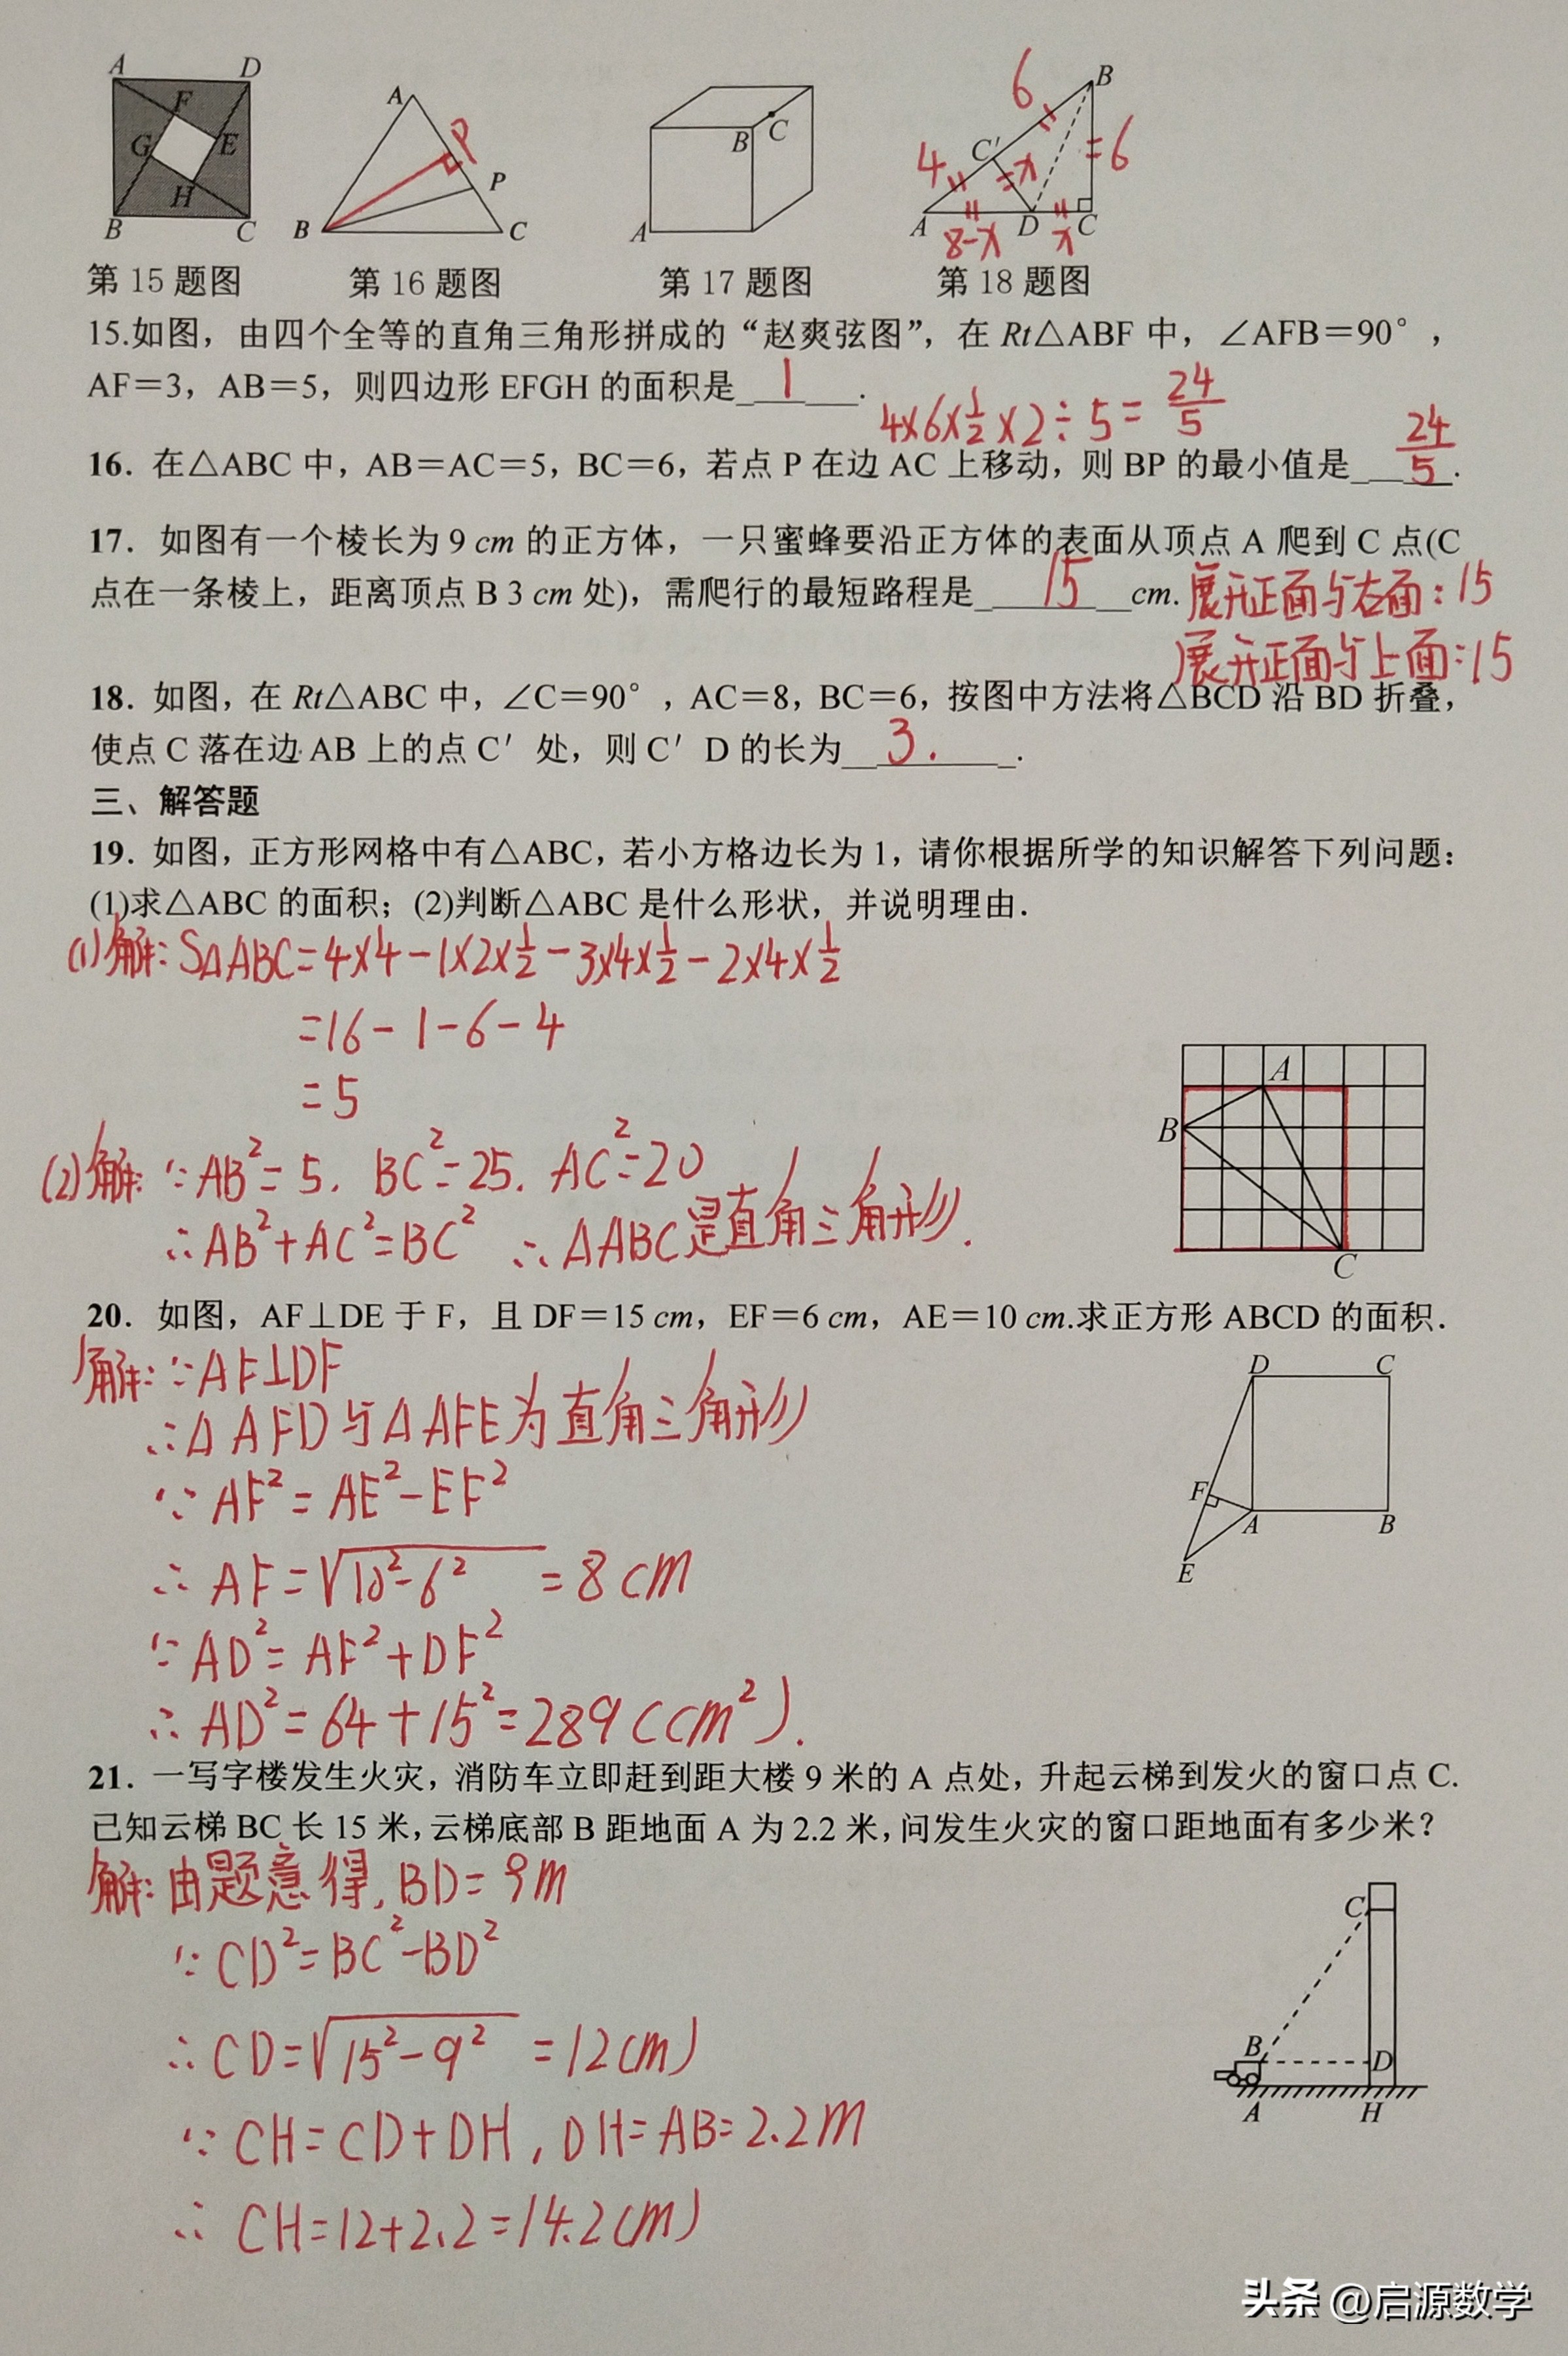 A D F G E H B C
A P B P C
B C A
6 B C' 4 =x =6 A D C 8-x x
第15题图 第16题图 第17题图 第18题图
15.如图，由四个全等的直角三角形拼成的“赵爽弦图”，在 Rt△ABF 中，∠AFB＝90°，
AF＝3，AB＝5，则四边形 EFGH 的面积是 1 .
4×6×1/2×2÷5=24/5
16．在△ABC 中，AB＝AC＝5，BC＝6，若点 P 在边 AC 上移动，则 BP 的最小值是 24/5 .
17．如图有一个棱长为 9 cm 的正方体，一只蜜蜂要沿正方体的表面从顶点 A 爬到 C 点(C
点在一条棱上，距离顶点 B 3 cm 处)，需爬行的最短路程是 15 cm. 展开正面与右面:15
展开正面与上面:15
18．如图，在 Rt△ABC 中，∠C＝90°，AC＝8，BC＝6，按图中方法将△BCD 沿 BD 折叠，
使点 C 落在边 AB 上的点 C′ 处，则 C′ D 的长为 3. .
三、解答题
19．如图，正方形网格中有△ABC，若小方格边长为 1，请你根据所学的知识解答下列问题：
(1)求△ABC 的面积；(2)判断△ABC 是什么形状，并说明理由．
(1)解: S△ABC=4×4-1×2×1/2-3×4×1/2-2×4×1/2
=16-1-6-4
=5
A B C
(2)解: ∵AB²=5. BC²=25. AC²=20
∴AB²+AC²=BC² ∴△ABC是直角三角形.
20．如图，AF⊥DE 于 F，且 DF＝15 cm，EF＝6 cm，AE＝10 cm.求正方形 ABCD 的面积．
解: ∵AF⊥DF
∴△AFD与△AFE为直角三角形
∵AF²=AE²-EF²
∴AF=√10²-6² =8cm
∵AD²=AF²+DF²
∴AD²=64+15²=289(cm²).
D C F A B E
21．一写字楼发生火灾，消防车立即赶到距大楼 9 米的 A 点处，升起云梯到发火的窗口点 C.
已知云梯 BC 长 15 米，云梯底部 B 距地面 A 为 2.2 米，问发生火灾的窗口距地面有多少米？
解: 由题意得, BD=9m
∵CD²=BC²-BD²
∴CD=√15²-9² =12(m)
∵CH=CD+DH, DH=AB=2.2m
∴CH=12+2.2=14.2(m)
C B D A H
头条 @启源数学